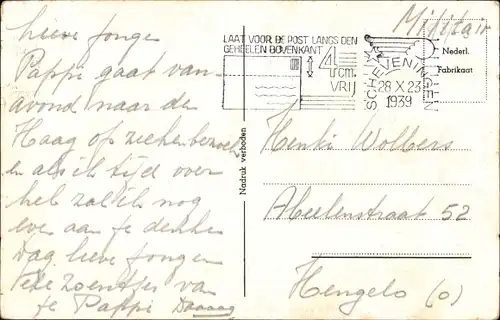 Lieve jongen
Pappi gaat van-
avond naar den
Haag op ziekenbezoek
en als ik tijd over
heb zal ik nog
even aan je denken
Dag lieve jongen
Vele zoentjes van
je Pappi Daaaag
Militair
LAAT VOOR DE POST LANGS DEN
GEHEELEN BOVENKANT
4 cm.
VRIJ
SCHEVENINGEN
28 X 23
1939
Nederl.
Fabrikaat
Nadruk verboden
Henki Wolbers
Abeelenstraat 52
Hengelo (O)